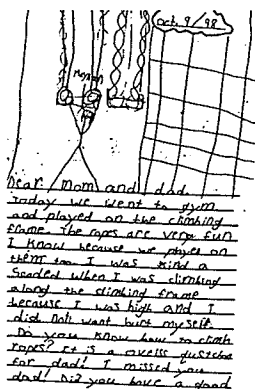 Oct. 9/98
Dear Mom and dad
Today we went to gym
and played on the climbing
frame. The ropes are very fun
I know because we played on
them too. I was kind a
scaded when I was climbing
along the climbing frame
because I was high and I
did not want hurt myself.
Do you know how to climb
ropes? It is a
for dad! I missed you
dad! Did you have a good